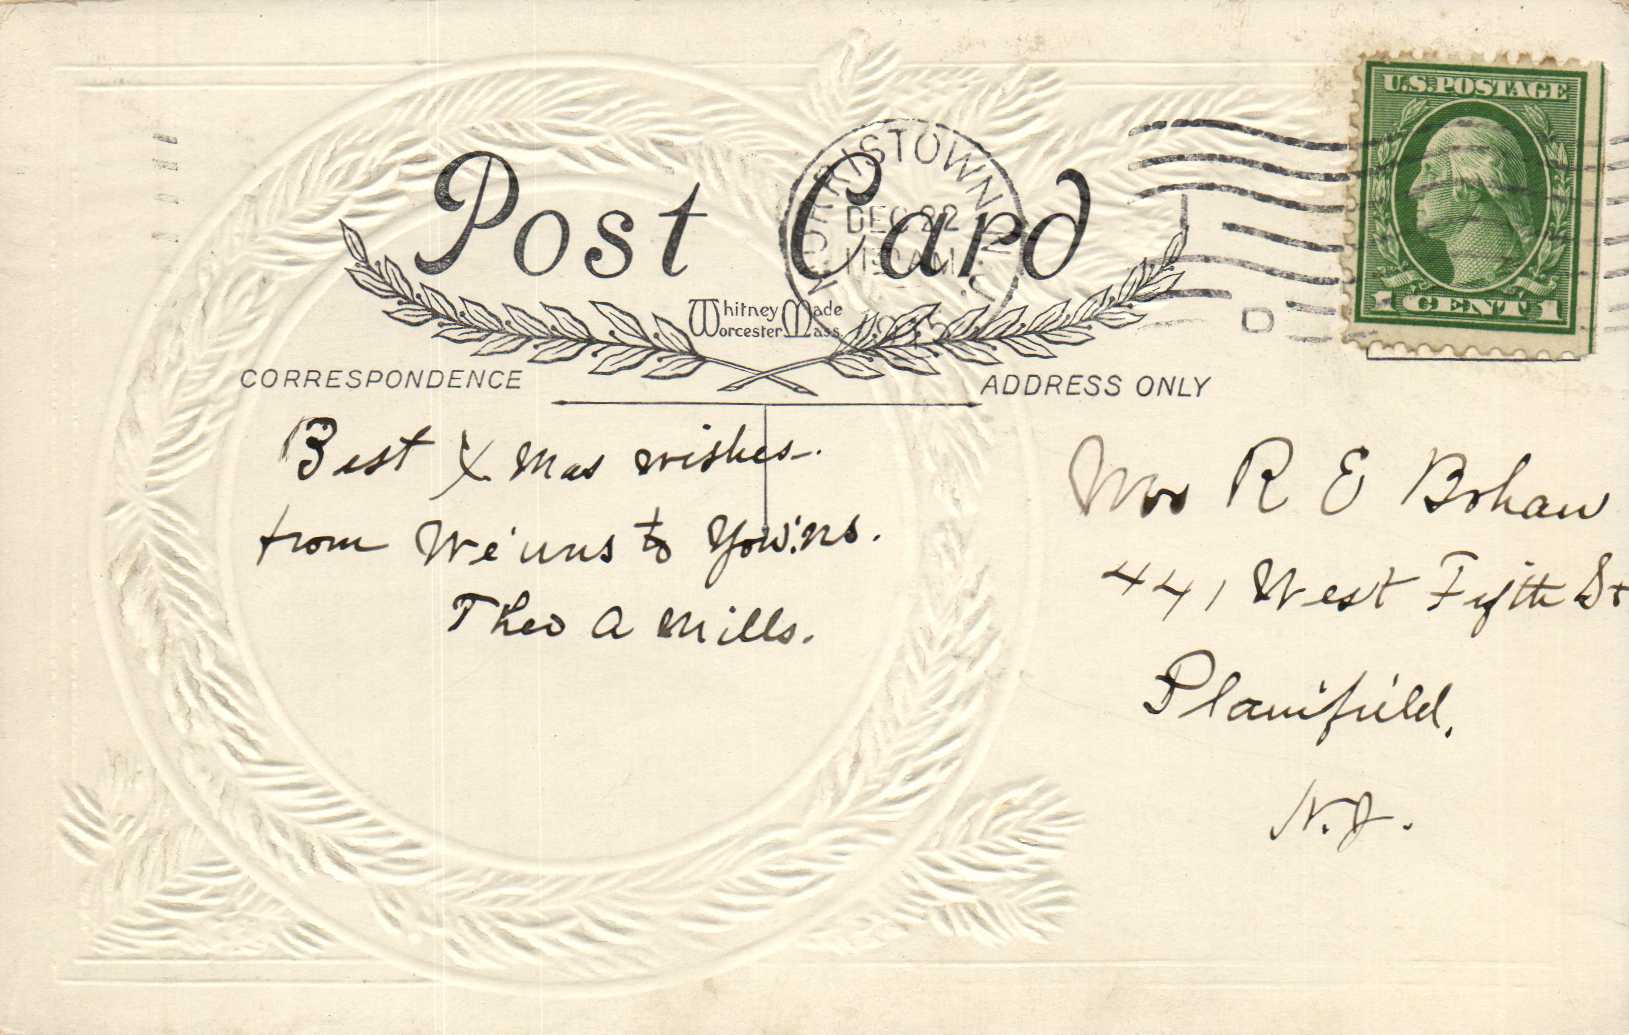 U.S. POSTAGE
1 CENT 1
Post Card
MORRISTOWN N.J.
DEC 22
11 AM
Whitney Made
Worcester Mass
CORRESPONDENCE
ADDRESS ONLY
Best X Mas wishes-.
from We'uns to You'ns.
Theo A Mills.
Mrs R E Bohan
441 West Fifth St
Plainfield,
N.J.